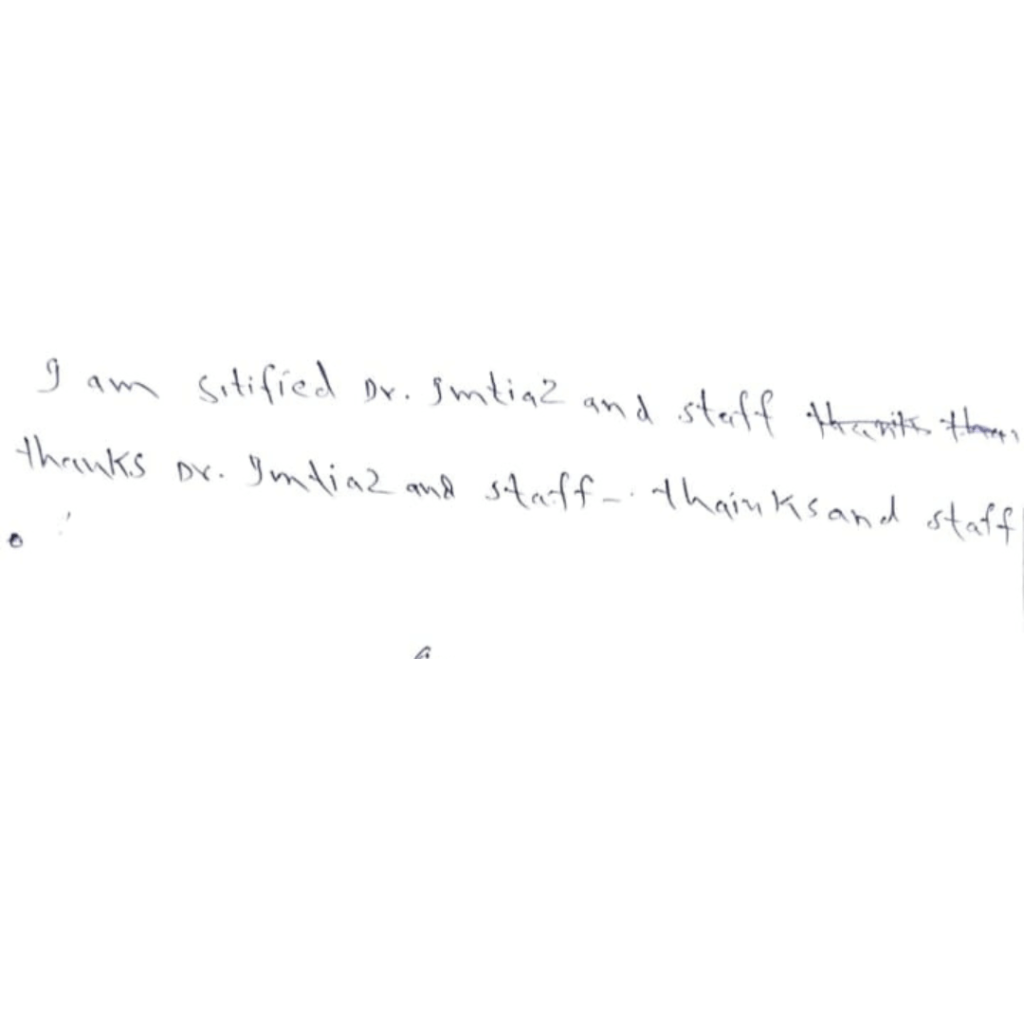 I am sitified Dr. Imtiaz and staff
thanks Dr. Imtiaz and staff - thainks and staff